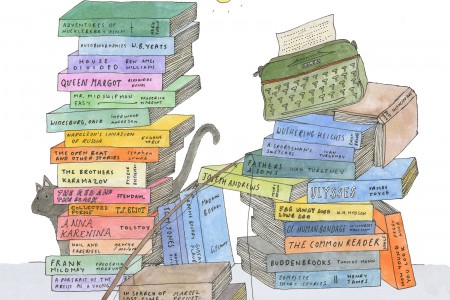 ADVENTURES OF
HUCKLEBERRY FINN
AUTOBIOGRAPHIES W.B. YEATS
HOUSE
DIVIDED
BEN AMES
WILLIAMS
QUEEN MARGOT
ALEXANDRE
DUMAS
MR. MIDSHIPMAN
EASY
FREDERICK
MARRYAT
WINESBURG, OHIO
SHERWOOD
ANDERSON
NAPOLEON'S INVASION
OF RUSSIA
EUGENE
TARLE
THE OPEN BOAT
AND OTHER STORIES
STEPHEN
CRANE
THE BROTHERS
KARAMAZOV
THE RED AND
THE BLACK
STENDAHL
COLLECTED
POEMS
T.S. ELIOT
ANNA
KARENINA
TOLSTOY
HAIL AND
FAREWELL
GEORGE
MOORE
FRANK
MILDMAY
FREDERICK
MARRYAT
A PORTRAIT OF THE
ARTIST AS A YOUNG
MADAME
BOVARY
IN SEARCH OF
LOST TIME
MARCEL
PROUST
WUTHERING HEIGHTS
A SPORTSMAN'S
SKETCHES
IVAN
TURGENEV
FATHERS
& SONS
IVAN
TURGENEV
JOSEPH ANDREWS
ULYSSES
JAMES
JOYCE
FAR AWAY AND
LONG AGO
W.H. HUDSON
OF HUMAN BONDAGE
THE COMMON READER
BUDDENBROOKS THOMAS MANN
COMPLETE
SHORT STORIES
HENRY
JAMES